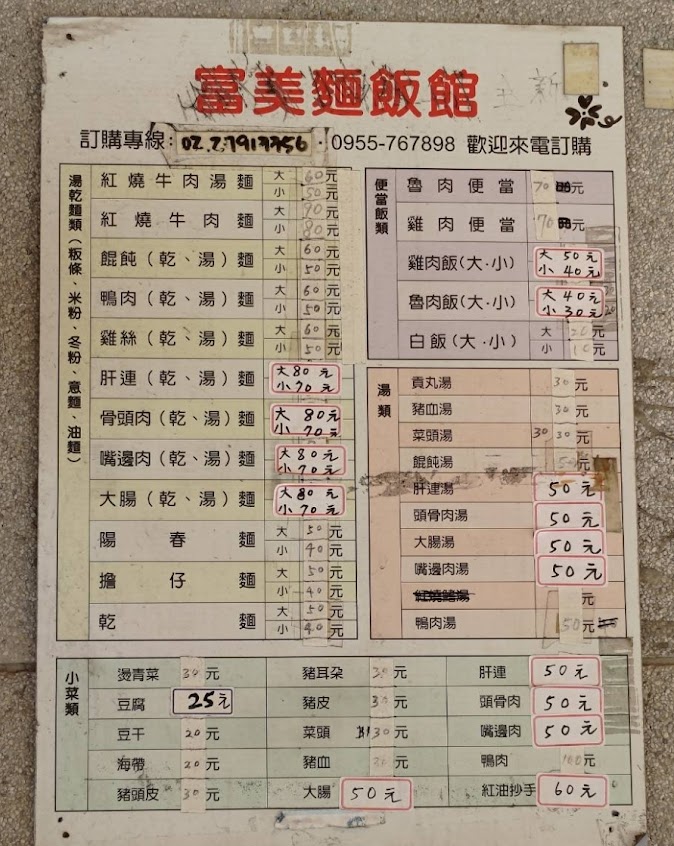 富美麵飯館
訂購專線：02.27917756．0955-767898 歡迎來電訂購
湯乾麵類（粄條、米粉、冬粉、意麵、油麵）
紅燒牛肉湯麵 大 60元
小 50元
紅燒牛肉麵 大 90元
小 80元
餛飩（乾、湯）麵 大 60元
小 50元
鴨肉（乾、湯）麵 大 60元
小 50元
雞絲（乾、湯）麵 大 60元
小 50元
肝連（乾、湯）麵 大80元
小70元
骨頭肉（乾、湯）麵 大80元
小70元
嘴邊肉（乾、湯）麵 大80元
小70元
大腸（乾、湯）麵 大80元
小70元
陽春麵 大 50元
小 40元
擔仔麵 大 50元
小 40元
乾麵 大 50元
小 40元
便當飯類
魯肉便當 70元
雞肉便當 70元
雞肉飯（大．小） 大50元
小40元
魯肉飯（大．小） 大40元
小30元
白飯（大．小） 大 20元
小 10元
湯類
貢丸湯 30元
豬血湯 30元
菜頭湯 30 30元
餛飩湯 元
肝連湯 50元
頭骨肉湯 50元
大腸湯 50元
嘴邊肉湯 50元
元
鴨肉湯 50元
小菜類
燙青菜 30元 豬耳朵 30元 肝連 50元
豆腐 25元 豬皮 30元 頭骨肉 50元
豆干 20元 菜頭 30元 嘴邊肉 50元
海帶 20元 豬血 元 鴨肉 100元
豬頭皮 30元 大腸 50元 紅油抄手 60元